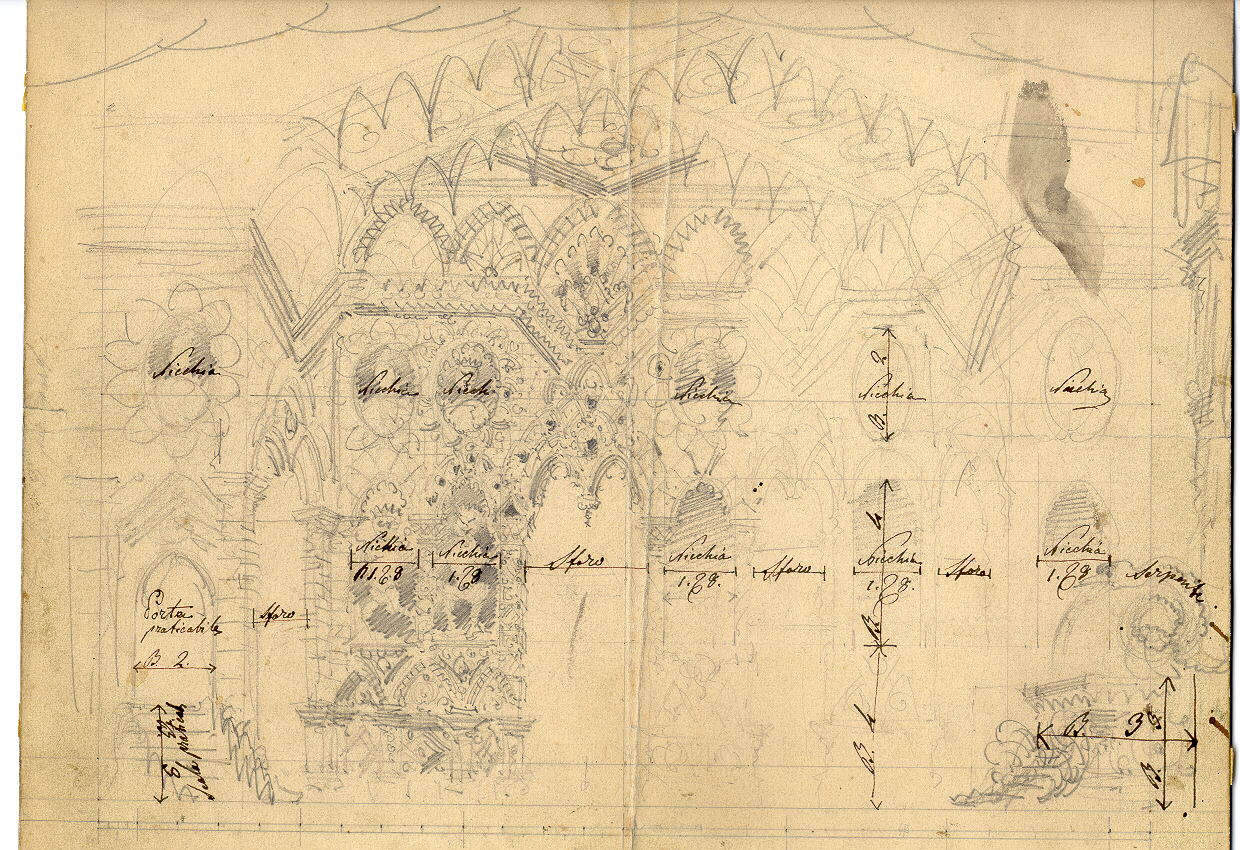 Nicchia
Nicchia
Nicchia
Nicchia
B. 2
Nicchia
Nicchia
Nicchia
1.28
Nicchia
1.28
Sforo
Nicchia
1.28.
Sforo
B. 4
Nicchia
1.28.
Sforo
Nicchia
1.28
Serpente
Porta
praticabile
B. 2.
Sforo
B. 4
B. 3
B.
Scala praticab